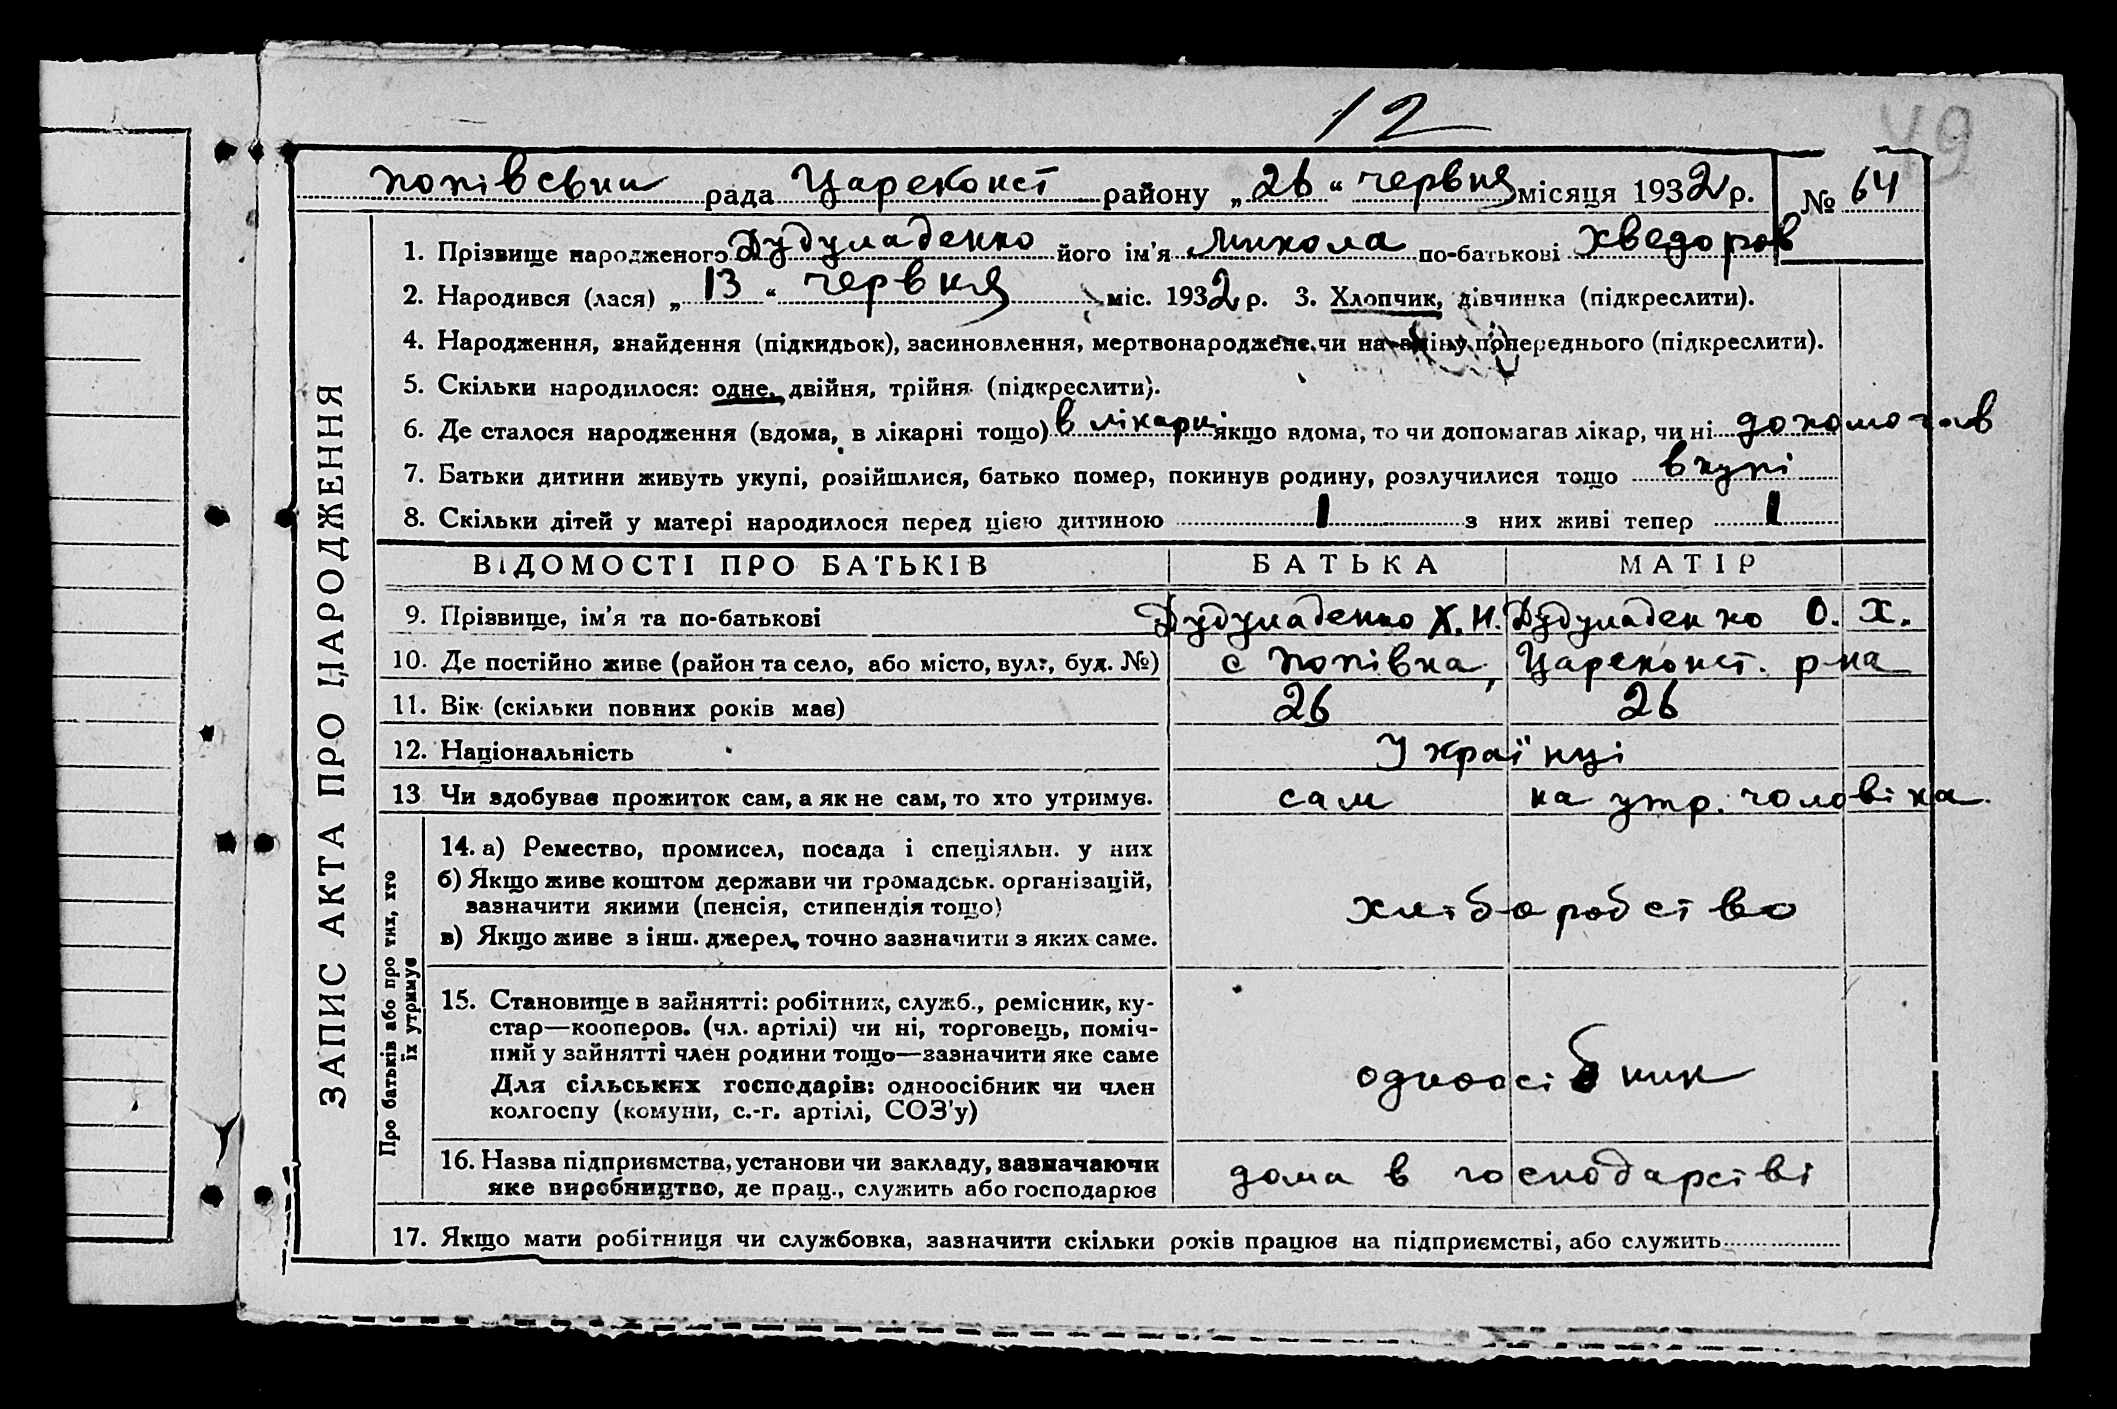 12
49
Попівська рада Цареконст району „26“ червня місяця 1932 р. № 64
ЗАПИС АКТА ПРО НАРОДЖЕННЯ
1. Прізвище народженого Дудуладенко його ім’я Микола по-батькові Хведоров
2. Народився (лася) „13“ червня міс. 1932 р. 3. Хлопчик, дівчинка (підкреслити).
4. Народження, знайдення (підкидьок), засиновлення, мертвонароджене, чи на зміну попереднього (підкреслити).
5. Скільки народилося: одне, двійня, трійня (підкреслити).
6. Де сталося народження (вдома, в лікарні тощо) в лікарні якщо вдома, то чи допомагав лікар, чи ні допомогав
7. Батьки дитини живуть укупі, розійшлися, батько помер, покинув родину, розлучилися тощо вкупі
8. Скільки дітей у матері народилося перед цією дитиною 1 з них живі тепер 1
ВІДОМОСТІ ПРО БАТЬКІВ БАТЬКА МАТІР
9. Прізвище, ім’я та по-батькові Дудуладенко Х. И. Дудуладенко О. Х.
10. Де постійно живе (район та село, або місто, вул., буд. №) с Попівка, Цареконст. р-на
11. Вік (скільки повних років має) 26 26
12. Національність Українці
13 Чи здобуває прожиток сам, а як не сам, то хто утримує. сам на утр. чоловіка
Про батьків або про тих, хто
їх утримує
14. а) Ремество, промисел, посада і спеціяльн. у них
б) Якщо живе коштом держави чи громадськ. організацій,
зазначити якими (пенсія, стипендія тощо)
хліборобство
в) Якщо живе з інш. джерел, точно зазначити з яких саме.
15. Становище в зайнятті: робітник, служб., ремісник, ку-
стар—кооперов. (чл. артілі) чи ні, торговець, поміч-
ний у зайнятті член родини тощо—зазначити яке саме
Для сільських господарів: одноосібник чи член
колгоспу (комуни, с.-г. артілі, СОЗ’у)
одноосібник
16. Назва підприємства, установи чи закладу, зазначаючи
яке виробництво, де прац., служить або господарює
дома в господарстві
17. Якщо мати робітниця чи службовка, зазначити скільки років працює на підприємстві, або служить